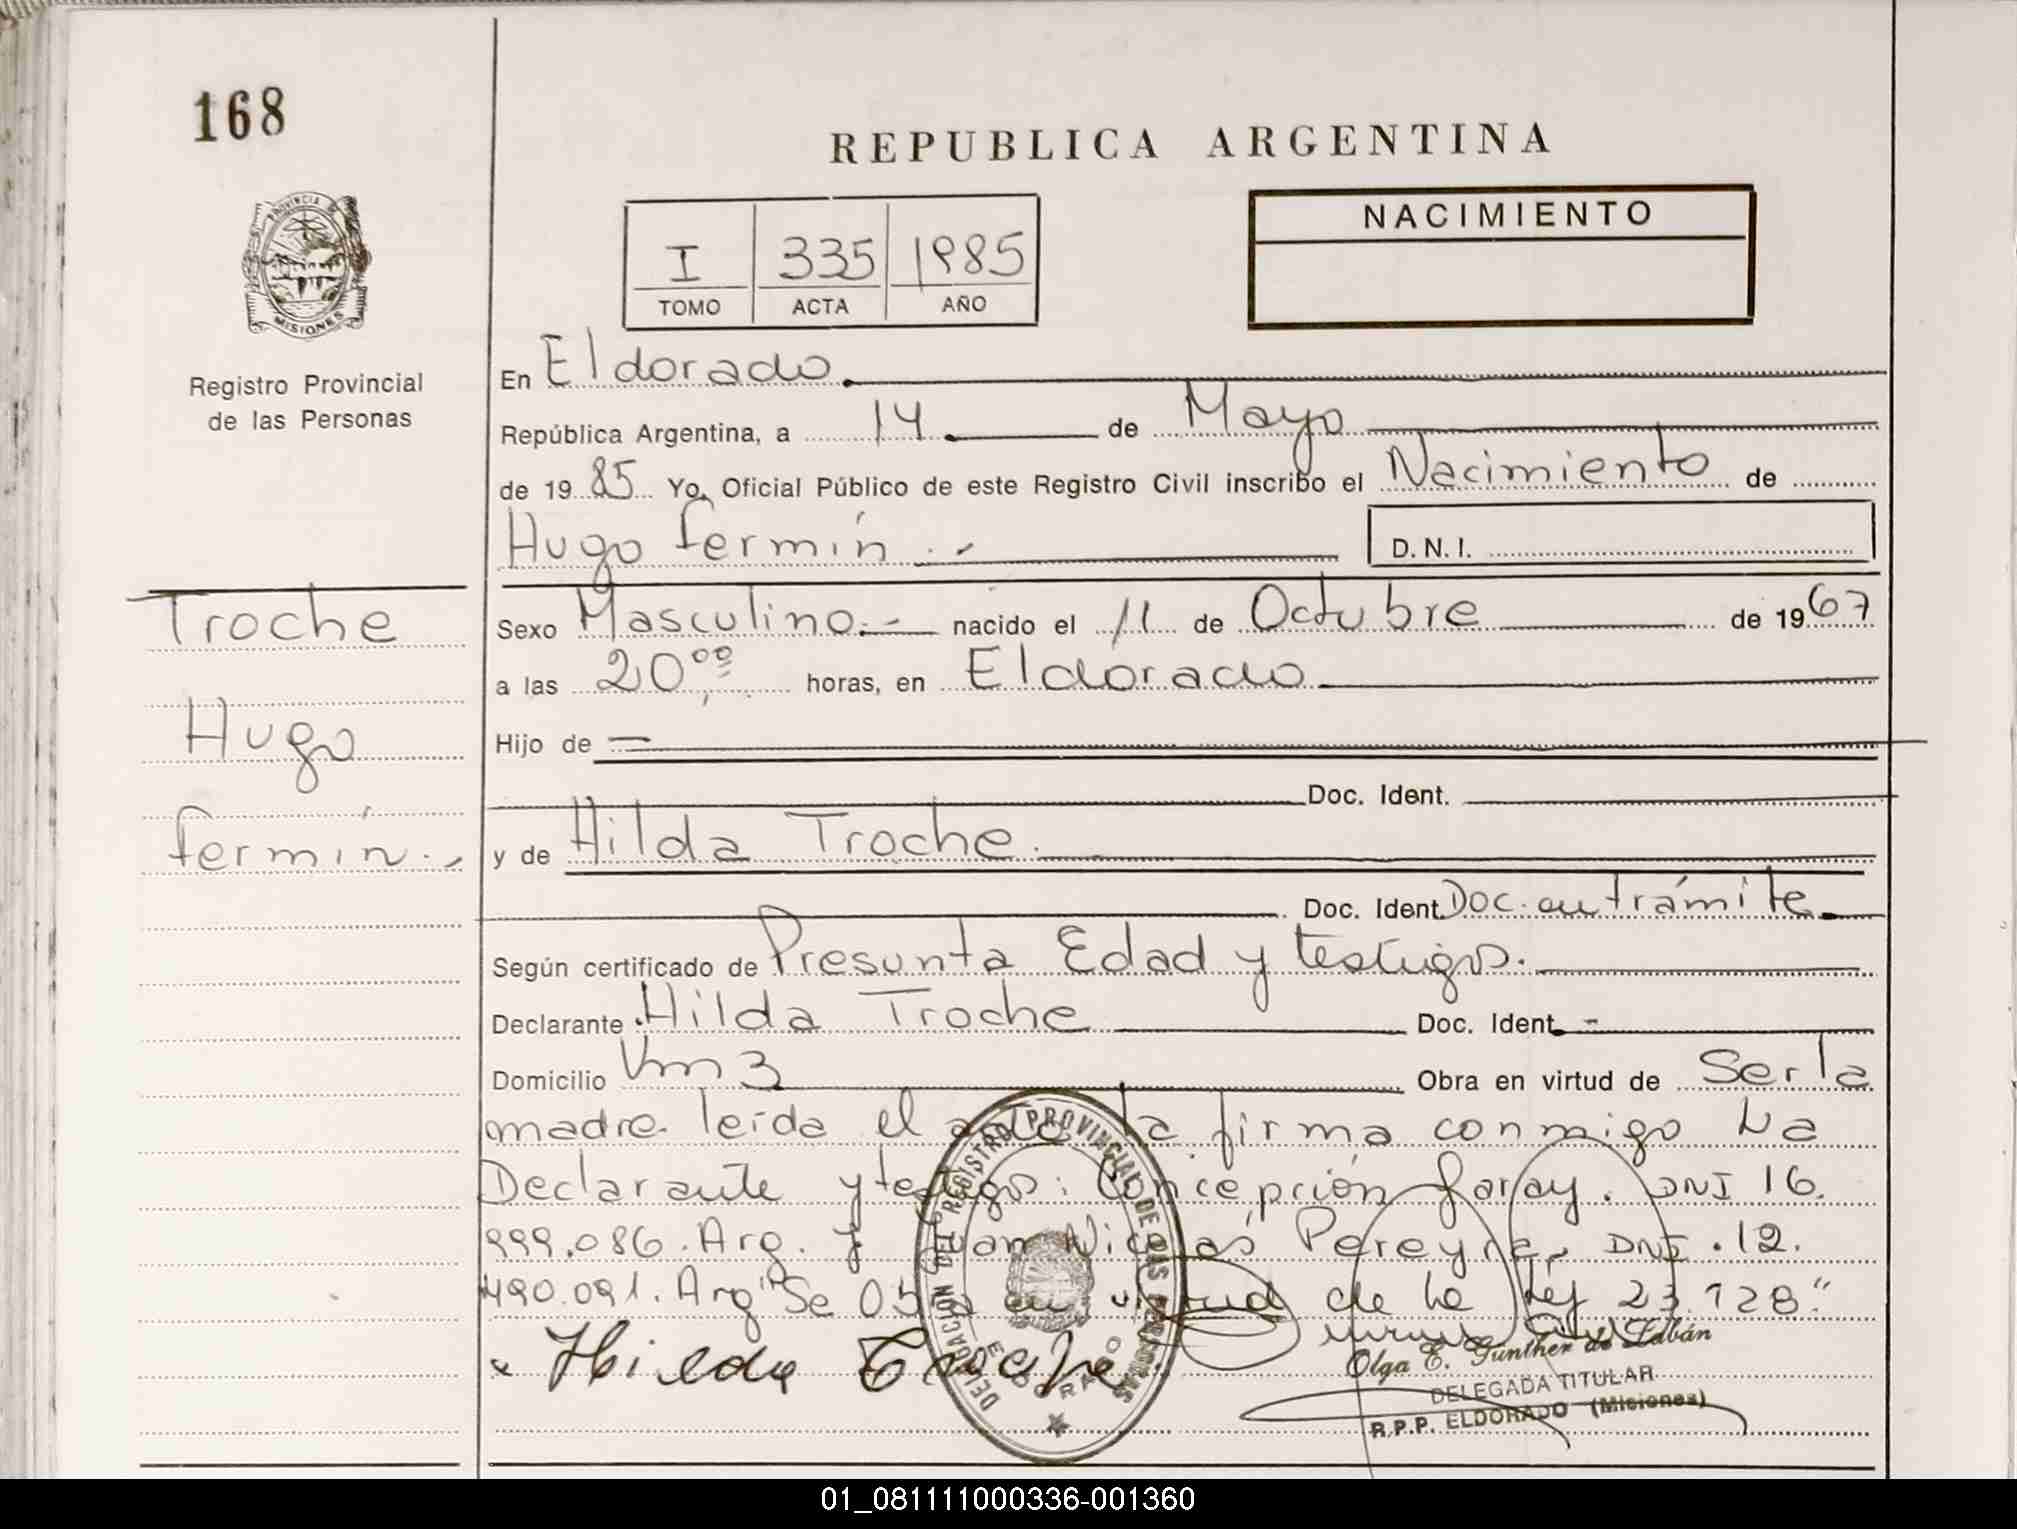 168
REPUBLICA ARGENTINA
PROVINCIA DE
MISIONES
Registro Provincial
de las Personas
I 335 1985
TOMO ACTA AÑO
NACIMIENTO
En Eldorado.
República Argentina, a 14 de Mayo
de 1985 Yo, Oficial Público de este Registro Civil inscribo el Nacimiento de
Hugo fermín .- D.N.I.
Troche
Hugo
fermín.-
Sexo Masculino.- nacido el 11 de Octubre de 1967
a las 20,00 horas, en Eldorado
Hijo de
Doc. Ident.
y de Hilda Troche.
Doc. Ident. Doc. en trámite
Según certificado de Presunta Edad y testigos.
Declarante Hilda Troche Doc. Ident. -
Domicilio Km 3 Obra en virtud de Ser la
madre leída el acta la firma conmigo La
Declarante y testigos: Concepción Garay. DNI 16.
999.086. Arg. y Juan Nicolás Pereyra, DNI .12.
490.091. Arg "Se en virtud de la Ley 23.128."
x Hilda Troche
DELEGACION DEL REGISTRO PROVINCIAL DE LAS PERSONAS
ELDORADO
Olga E. Gunther de Labán
DELEGADA TITULAR
R.P.P. ELDORADO (Misiones)
01_081111000336-001360